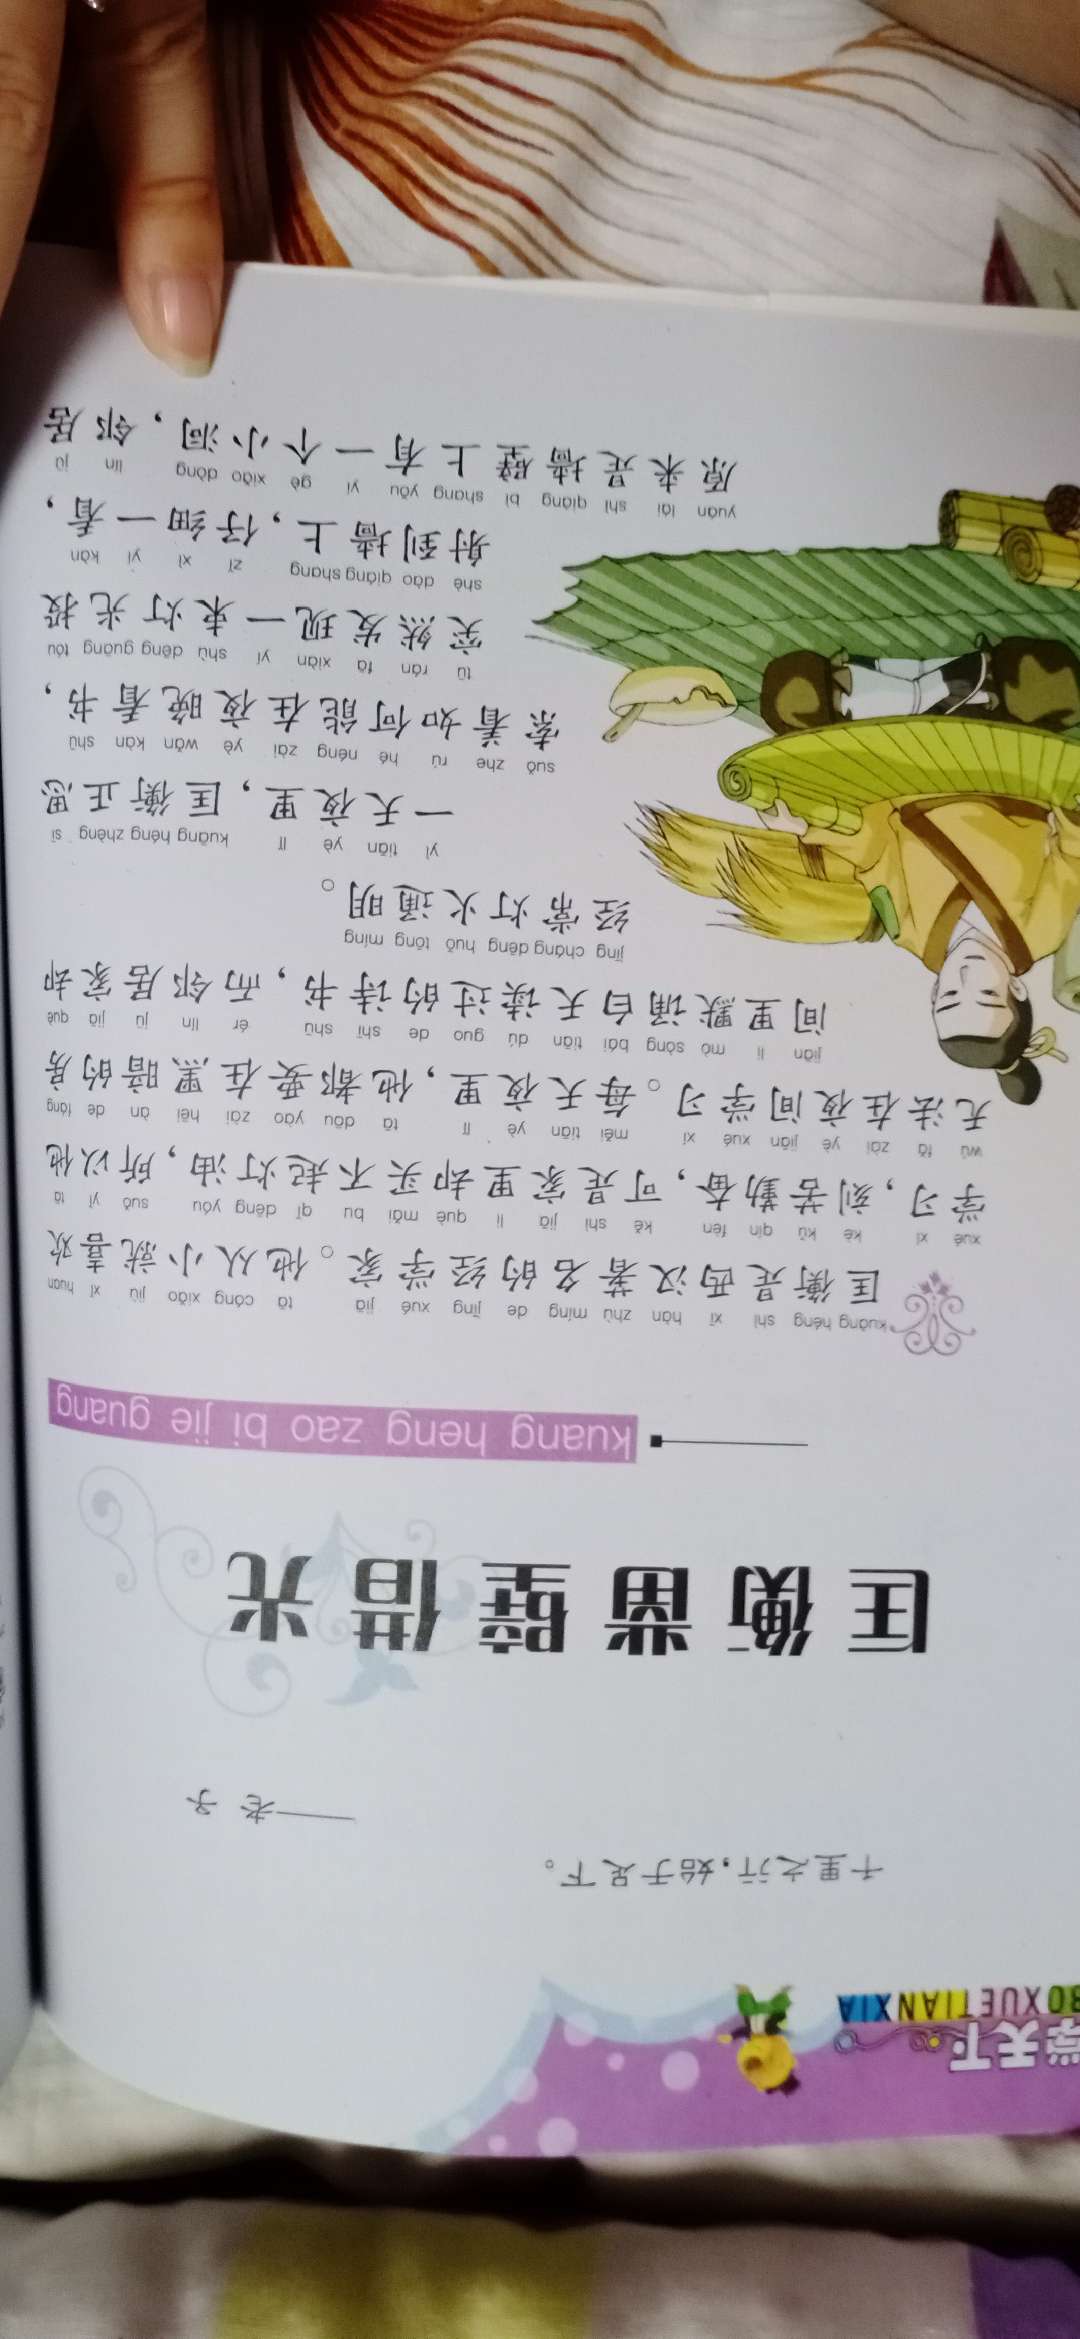 学天下
BOXUETIANXIA
千里之行，始于足下。
——老子
匡衡凿壁借光
kuang heng zao bi jie guang
kuāng héng shì xī hàn zhù míng de jīng xué jiā tā cóng xiǎo jiù xǐ huan
匡衡是西汉著名的经学家。他从小就喜欢
xué xí kè kǔ qín fèn kě shì jiā li què mǎi bu qǐ dēng yóu suǒ yǐ tā
学习，刻苦勤奋，可是家里却买不起灯油，所以他
wú fǎ zài yè jiān xué xí měi tiān yè lǐ tā dōu yào zài hēi àn de fáng
无法在夜间学习。每天夜里，他都要在黑暗的房
jiān li mò sòng bái tiān dú guo de shī shū ér lín jū jiā què
间里默诵白天读过的诗书，而邻居家却
jīng cháng dēng huǒ tōng míng
经常灯火通明。
yì tiān yè lǐ kuāng héng zhèng sī
一天夜里，匡衡正思
suǒ zhe rú hé néng zài yè wǎn kàn shū
索着如何能在夜晚看书，
tū rán fā xiàn yí shù dēng guāng tóu
突然发现一束灯光投
shè dào qiáng shang zǐ xì yí kàn
射到墙上，仔细一看，
yuán lái shì qiáng bì shang yǒu yí gè xiǎo dòng lín jū
原来是墙壁上有一个小洞，邻居